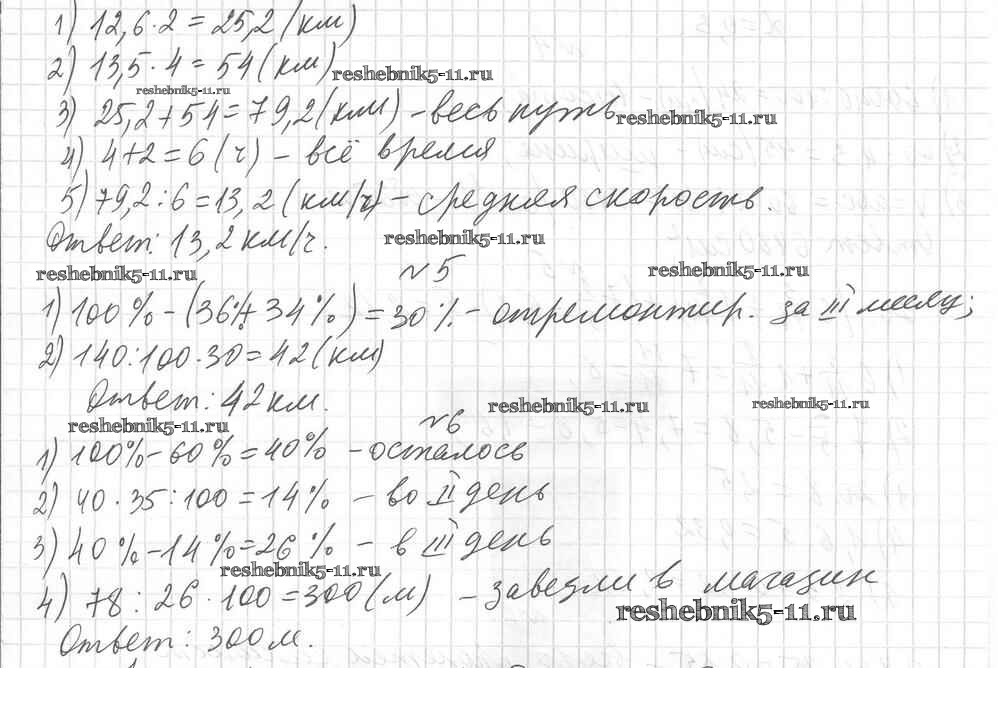 1) 12,6·2 = 25,2 (км)
2) 13,5·4 = 54 (км) reshebnik5-11.ru
reshebnik5-11.ru
3) 25,2+54 = 79,2 (км) - весь путь reshebnik5-11.ru
4) 4+2 = 6 (ч) - всё время
5) 79,2 : 6 = 13,2 (км/ч) - средняя скорость.
Ответ: 13,2 км/ч. reshebnik5-11.ru
reshebnik5-11.ru №5 reshebnik5-11.ru
1) 100% - (36% + 34%) = 30% - отремонтир. за III месяц;
2) 140:100·30 = 42 (км)
Ответ: 42 км. reshebnik5-11.ru reshebnik5-11.ru
reshebnik5-11.ru №6
1) 100% - 60% = 40% - осталось
2) 40·35:100 = 14% - во II день
3) 40% - 14% = 26% - в III день
reshebnik5-11.ru
4) 78 : 26 · 100 = 300 (м) - завезли в магазин
reshebnik5-11.ru
Ответ: 300 м.